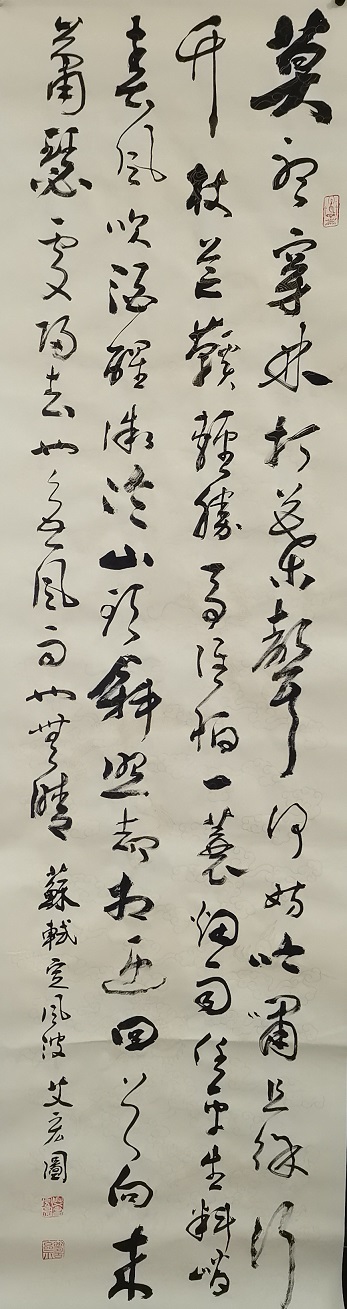 莫聽穿林打葉聲何妨吟嘯且徐行
竹杖芒鞋輕勝馬誰怕一蓑烟雨任平生料峭
春風吹酒醒微冷山頭斜照却相迎回首向來
蕭瑟處歸去也無風雨也無晴 蘇軾定風波 艾宏圖